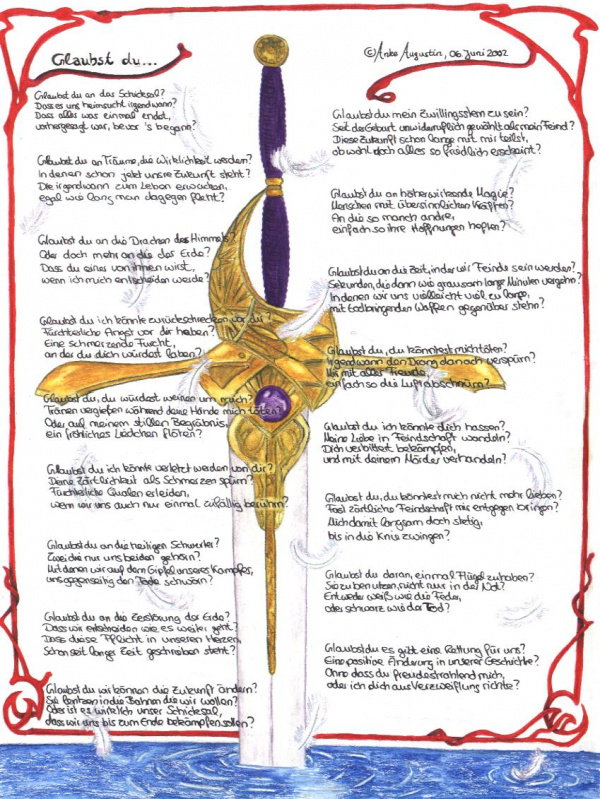 Glaubst du...
©Anke Augustin, 06 Juni 2002
Glaubst du an das Schicksal?
Dass es uns heimsucht irgendwann?
Dass alles was einmal endet,
vorhergesagt war, bevor's begann?
Glaubst du an Träume, die Wirklichkeit werden?
In denen schon jetzt unsre Zukunft steht?
Die irgendwann zum Leben erwachen,
egal wie lang man dagegen fleht?
Glaubst du an die Drachen des Himmels?
Oder doch mehr an die der Erde?
Dass du eines von ihnen wirst,
wenn ich mich entscheiden werde?
Glaubst du ich könnte zurückschrecken vor dir?
Fürchterliche Angst vor dir haben?
Eine schmerzende Furcht,
an der du dich würdest laben?
Glaubst du, du würdest weinen um mich?
Tränen vergießen während deine Hände mich töten?
Oder auf meinem stillen Begräbnis,
ein fröhliches Liedchen flöten?
Glaubst du ich könnte verletzt werden von dir?
Deine Zärtlichkeit als Schmerzen spür'n?
Fürchterliche Qualen erleiden,
wenn wir uns auch nur einmal zufällig berühr'n?
Glaubst du an die heiligen Schwerter?
Zwei die nur uns beiden gehör'n?
Mit denen wir auf dem Gipfel unseres Kampfes,
uns gegenseitig den Tode schwör'n?
Glaubst du an die Zerstörung der Erde?
Dass wir entscheiden wie es weiter geht?
Dass diese Pflicht in unseren Herzen,
Schon seit langer Zeit geschrieben steht?
Glaubst du wir können die Zukunft ändern?
Sie lenken in die Bahnen die wir wollen?
Oder ist es wirklich unser Schicksal,
dass wir uns bis zum Ende bekämpfen sollen?
Glaubst du mein Zwillingsstern zu sein?
Seit der Geburt unwiderruflich gewählt als mein Feind?
Diese Zukunft schon lange mit mir teilst,
obwohl doch alles so friedlich erscheint?
Glaubst du an höherwirkende Magie?
Menschen mit übersinnlichen Kräften?
An die so manch andre,
einfach so ihre Hoffnungen heften?
Glaubst du an die Zeit, in der wir Feinde sein werden?
Sekunden, die dann wie grausam lange Minuten vergehn?
In denen wir uns vielleicht viel zu lange,
mit todbringenden Waffen gegenüber stehn?
Glaubst du, du könntest mich töten?
Irgendwann den Drang danach verspür'n?
Mir mit aller Freude,
einfach so die Luft abschnür'n?
Glaubst du ich könnte dich hassen?
Meine Liebe in Feindschaft wandeln?
Dich verbittert bekämpfen,
und mit deinem Mörder verhandeln?
Glaubst du, du könntest mich nicht mehr lieben?
Fast zärtliche Feindschaft mir entgegen bringen?
Mich damit langsam doch stetig,
bis in die Knie zwingen?
Glaubst du daran, einmal Flügel zu haben?
Sie zu benutzen, nicht nur in der Not?
Entweder weiß wie die Feder,
oder schwarz wie der Tod?
Glaubst du es gibt eine Rettung für uns?
Eine positive Änderung in unserer Geschichte?
Ohne dass du freudestrahlend mich,
oder ich dich aus Verzweiflung richte?